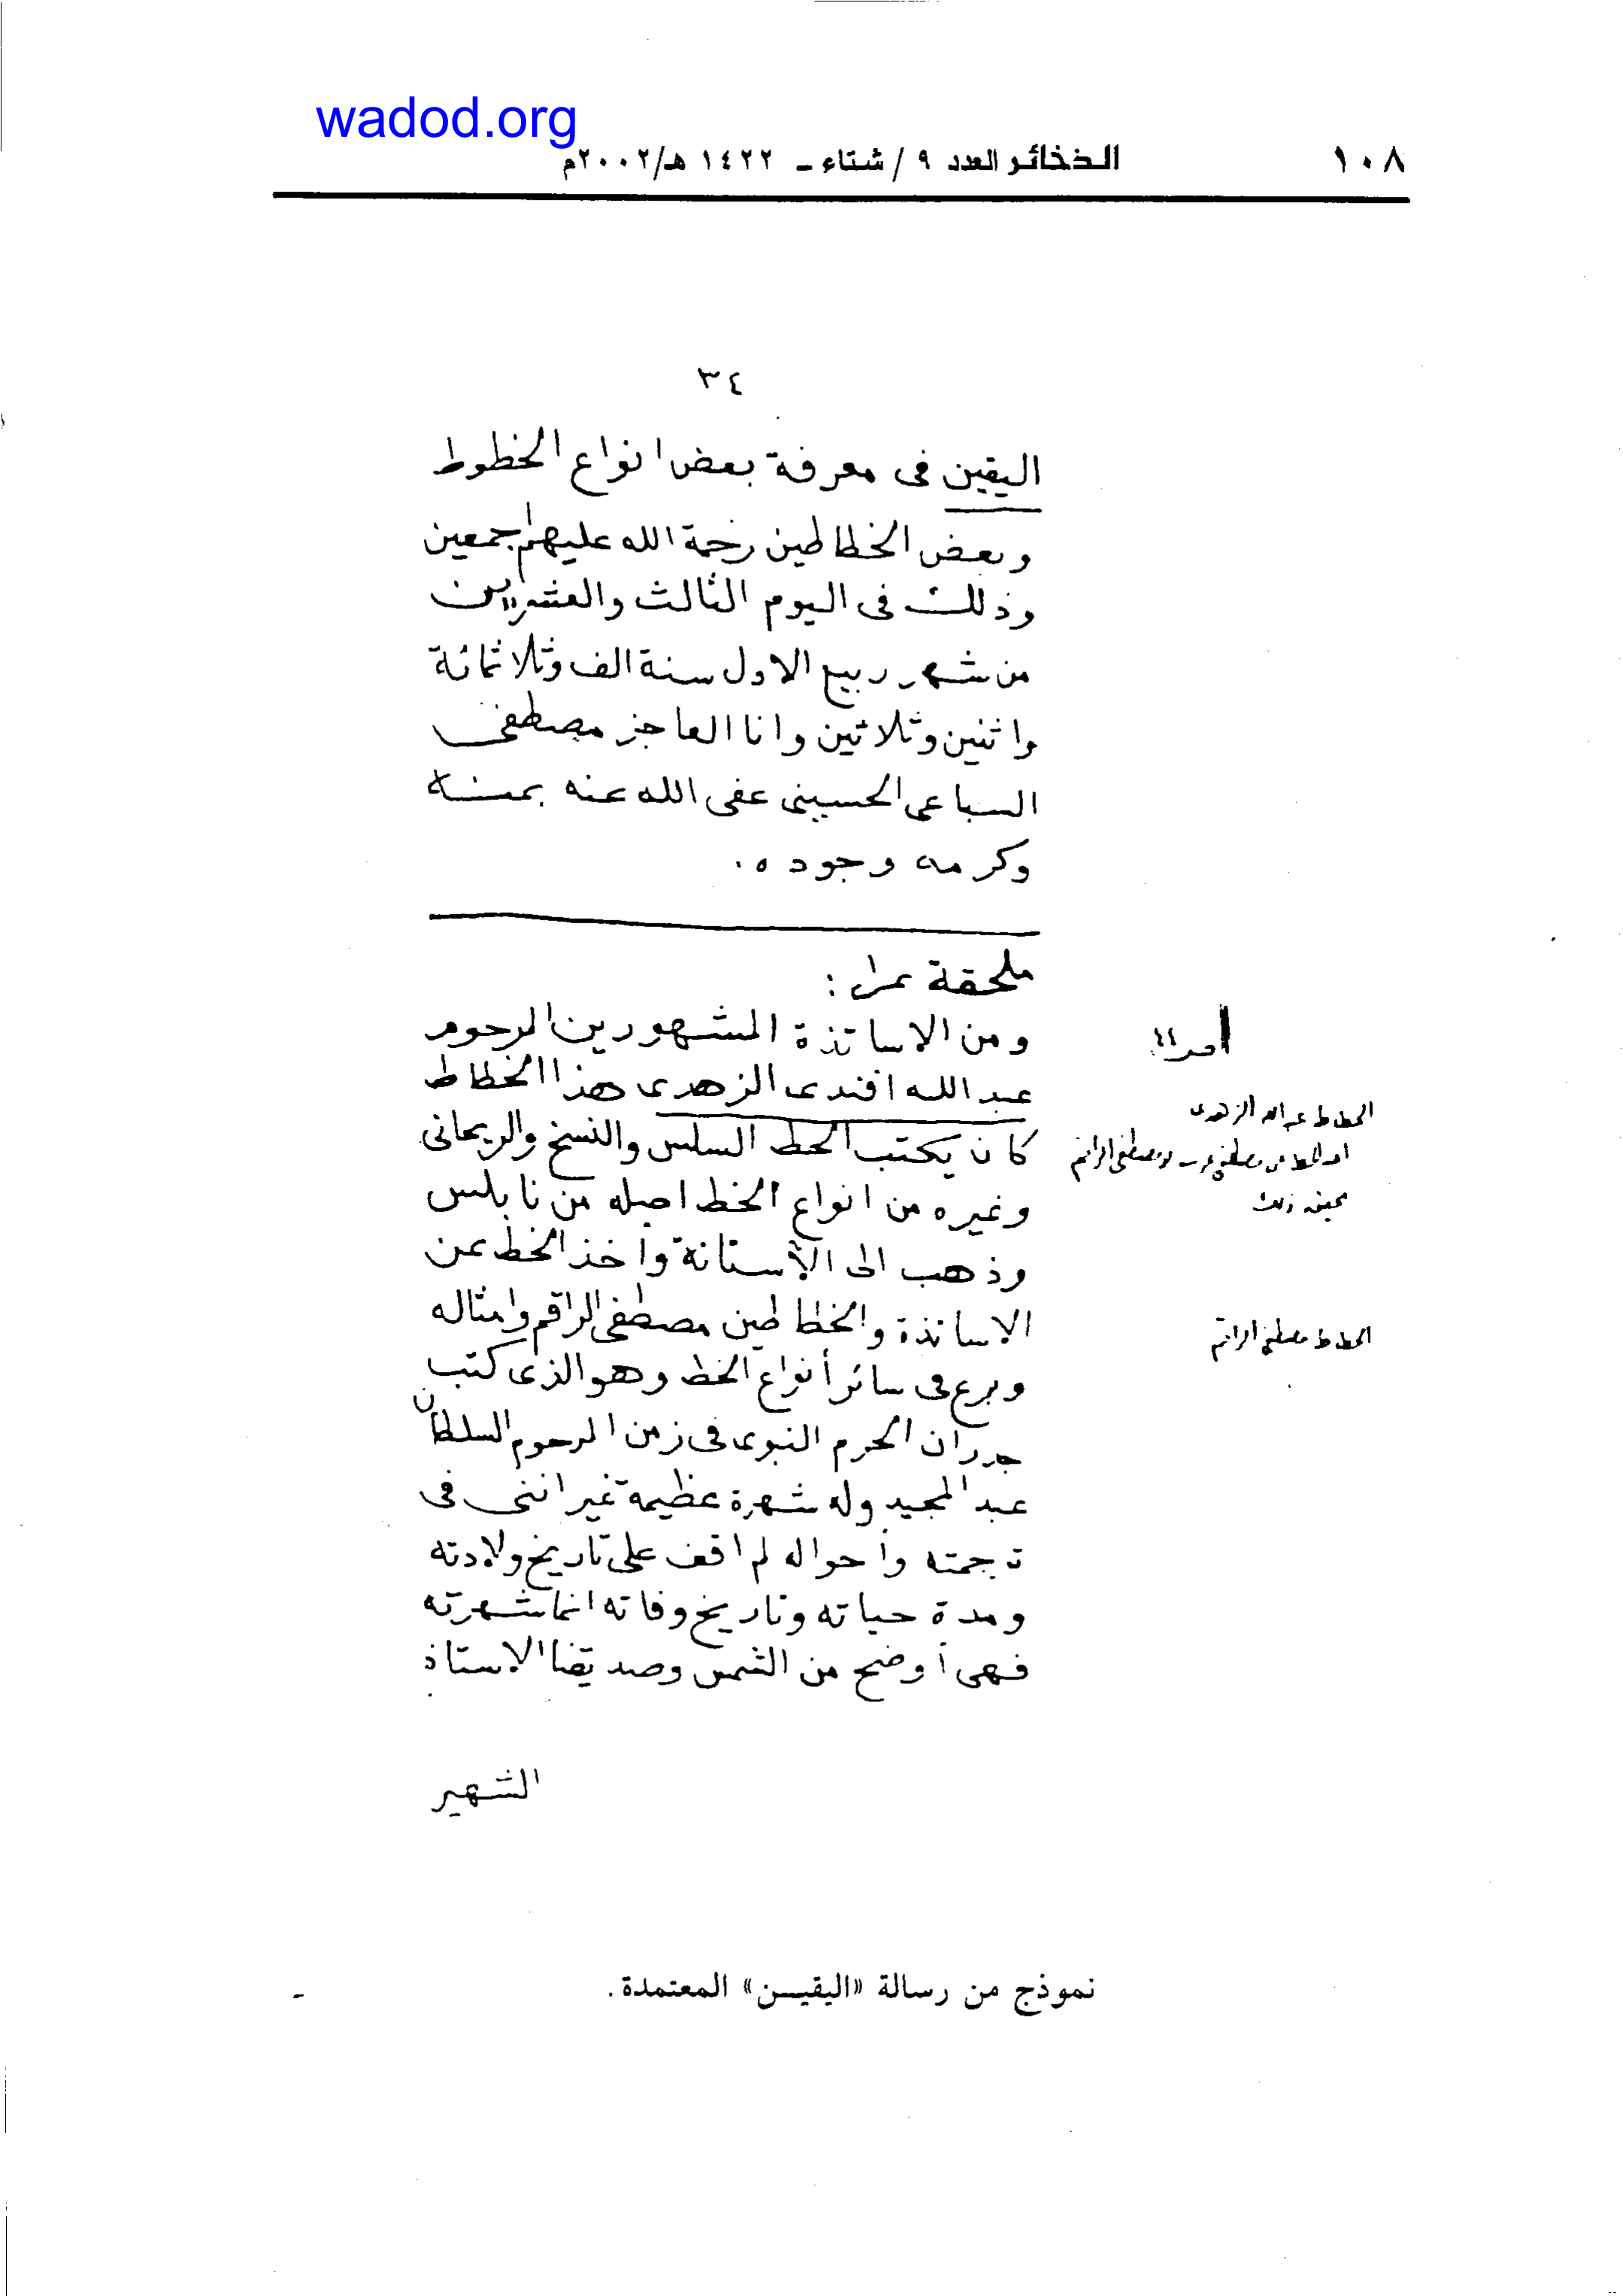 wadod.org
١٠٨ الذخائر العدد ٩ / شتاء ـ ١٤٢٢ هـ/٢٠٠٢م
٣٤
اليقين فى معرفة بعض انواع الخطوط
وبعض الخطاطين رحمة الله عليهم اجمعين
وذلك فى اليوم الثالث والعشرين
من شهر ربيع الاول سنة الف وثلاثمائة
واثنين وثلاثين وانا العاجز مصطفى
السباعى الحسينى عفى الله عنه بمنه
وكرمه وجوده .
ملحقة :
ومن الاساتذة المشهورين المرحوم
عبد الله افندى الزهدى هذا الخطاط
كان يكتب الخط السلس والنسخ والريحانى
وغيره من انواع الخط اصله من نابلس
وذهب الى الآستانة وأخذ الخط عن
الاساتذة والخطاطين مصطفى الراقم وامثاله
وبرع فى سائر أنواع الخط وهو الذى كتب
جدران الحرم النبوى فى زمن المرحوم السلطان
عبد المجيد وله شهرة عظيمة غير اننى فى
ترجمته وأحواله لم اقف على تاريخ ولادته
ومدة حياته وتاريخ وفاته انما شهرته
فهى أوضح من الشمس وصديقنا الاستاذ
الشهير
الخطاط عبد الله الزهدى
الخطاط مصطفى الراقم
نموذج من رسالة «اليقيـن» المعتمدة.